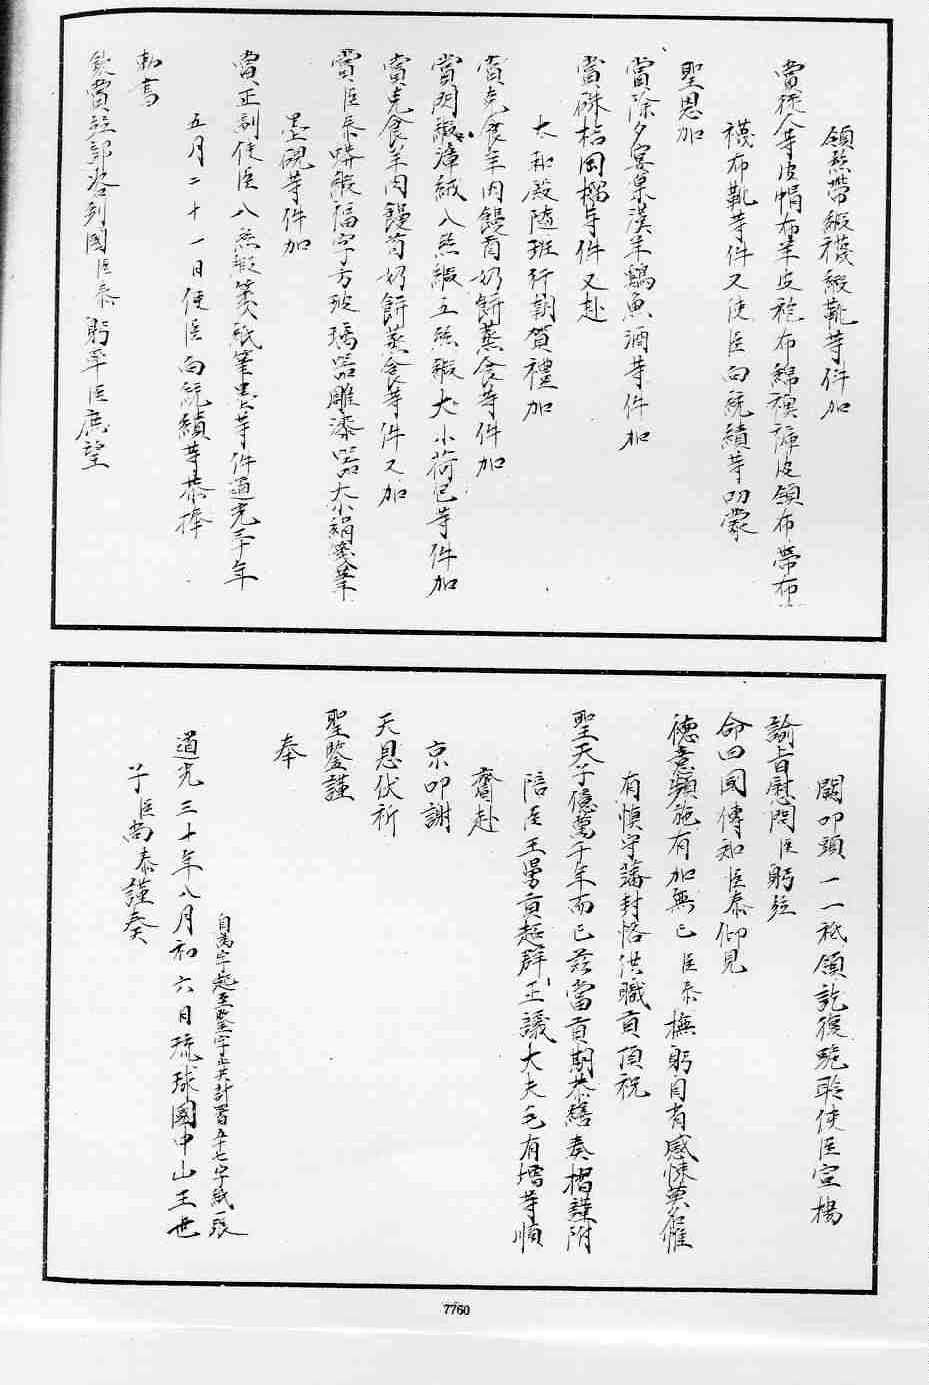 領絲帶緞襪緞靴等件加
賞從人等皮帽布羊皮袍布綿襖褲皮領布帶布
襪布靴等件又使臣向統績等叨蒙
聖恩加
賞除夕宴菓漢羊鷄魚酒等件加
賞酥枯岡榴等件又赴
太和殿隨班行朝賀禮加
賞克食羊肉饅首奶餅蒸食等件加
賞閃緞漳絨八絲緞五絲緞大小荷包等件加
賞克食羊肉饅首奶餅蒸食等件又加
賞臣泰蟒緞福字方玻璃器雕漆器大小絹箋筆
墨硯等件加
賞正副使臣八絲緞箋紙筆墨等件道光三十年
五月二十一日使臣向統績等恭捧
勅書
欽賞疋即登到國臣泰躬率臣庶望
闕叩頭一一祗領訖復跪聆使臣宣揚
諭旨慰問臣躬疋
命回國傳知臣泰仰見
德意頻施有加無已臣泰撫躬自有感悚莫名惟
有慎守藩封恪供職貢頂祝
聖天子億萬千年而已茲當貢期恭繕奏摺謹附
陪臣王舅貢起群正議大夫毛有增等順
齎赴
京叩謝
天恩伏祈
聖鑒謹
奉
自為字起至鑒字止共計 百五十七字紙一張
道光三十年八月初六日琉球國中山王世
子臣尚泰謹奏
7760